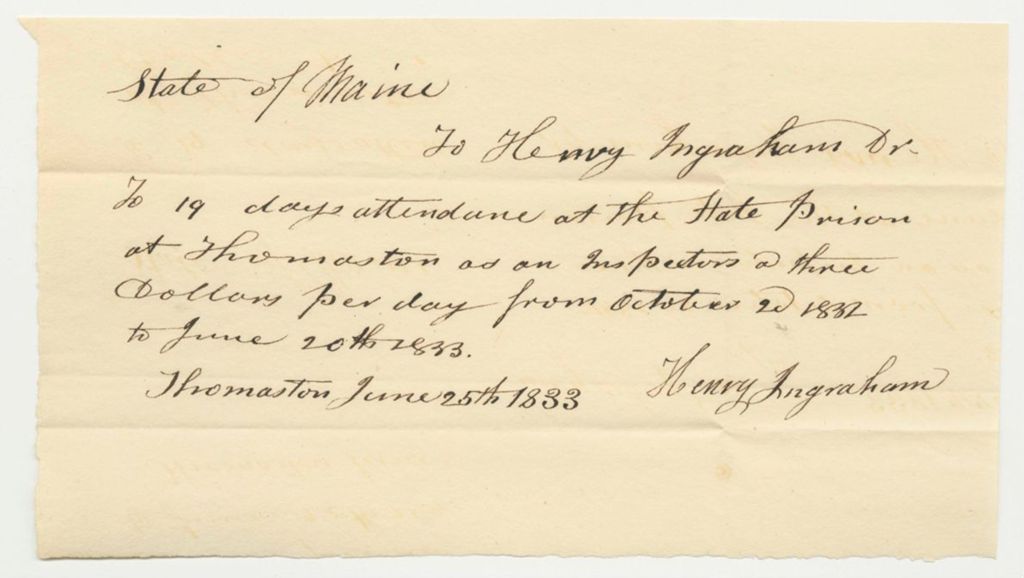 State of Maine
To Henry Ingraham Dr.
To 19 days attendane at the State Prison
at Thomaston as an Inspectors a three
Dollars per day from October 2d 1832
to June 20th 1833.
Thomaston June 25th 1833
Henry Ingraham